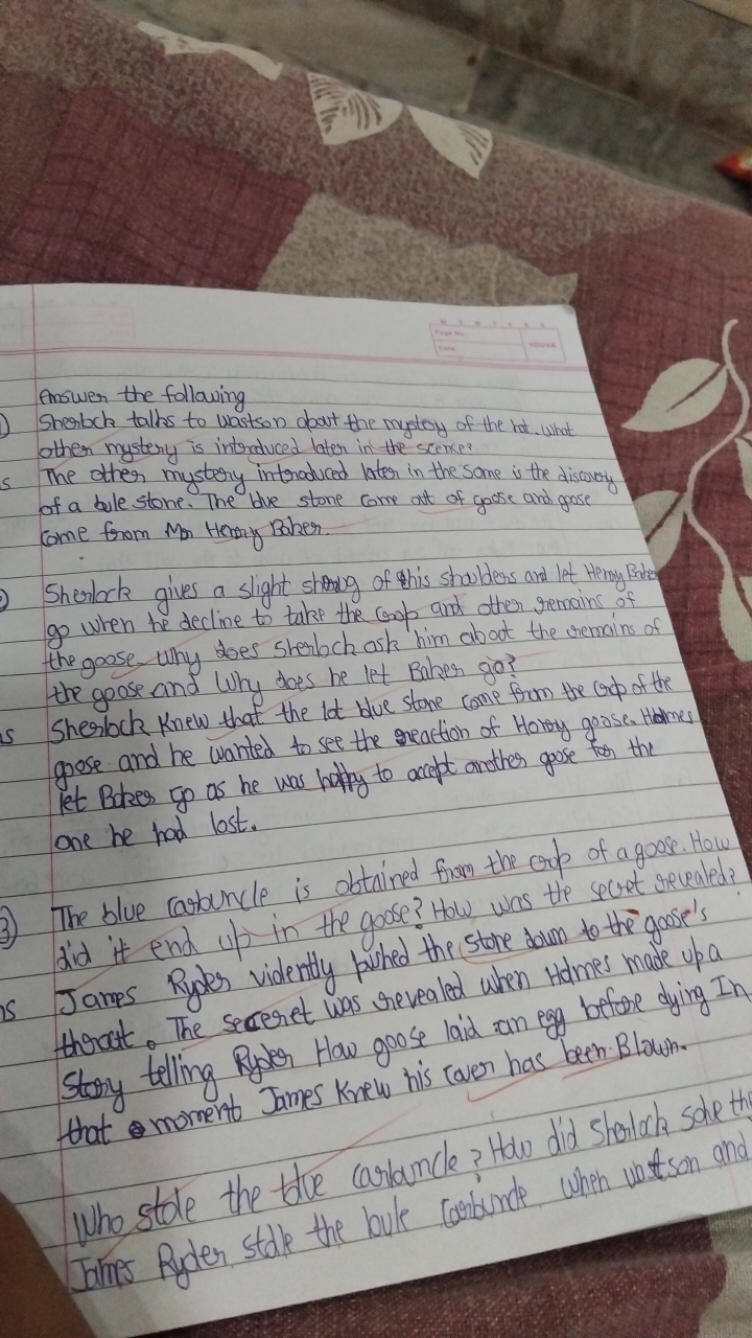 Page No.
Date:
YOUVA
Answer the following
1) Sherlock talks to wastson about the mystery of the hat. what
other mystery is introduced later in the scence?
s The other mystery introduced later in the same is the discovery
of a bule stone. The blue stone come out of goose and goose
come from Mr Henry Baker.
Sherlock gives a slight shrug of this shoulders and let Henry Baker
go when he decline to take the coop and other remains of
the goose. why does Sherlock ask him about the remains of
the goose and Why does he let Baker go?
ns Sherlock Knew that the blue stone come from the cop of the
goose and he wanted to see the reaction of Henry goose. Holmes
let Baker go as he was happy to accept another goose for the
one he had lost.
3) The blue carbuncle is obtained from the crop of a goose. How
did it end up in the goose? How was the secret revealed?
ns James Ryder vidently pushed the stone down to the goose's
throat. The seceret was revealed when Holmes made up a
story telling Ryder How goose laid an egg before dying In
that moment James Knew his cover has been Blown.
Who stole the blue carbuncle? How did Sherlock solve the
James Ryder stole the bule carbuncle. When watson and